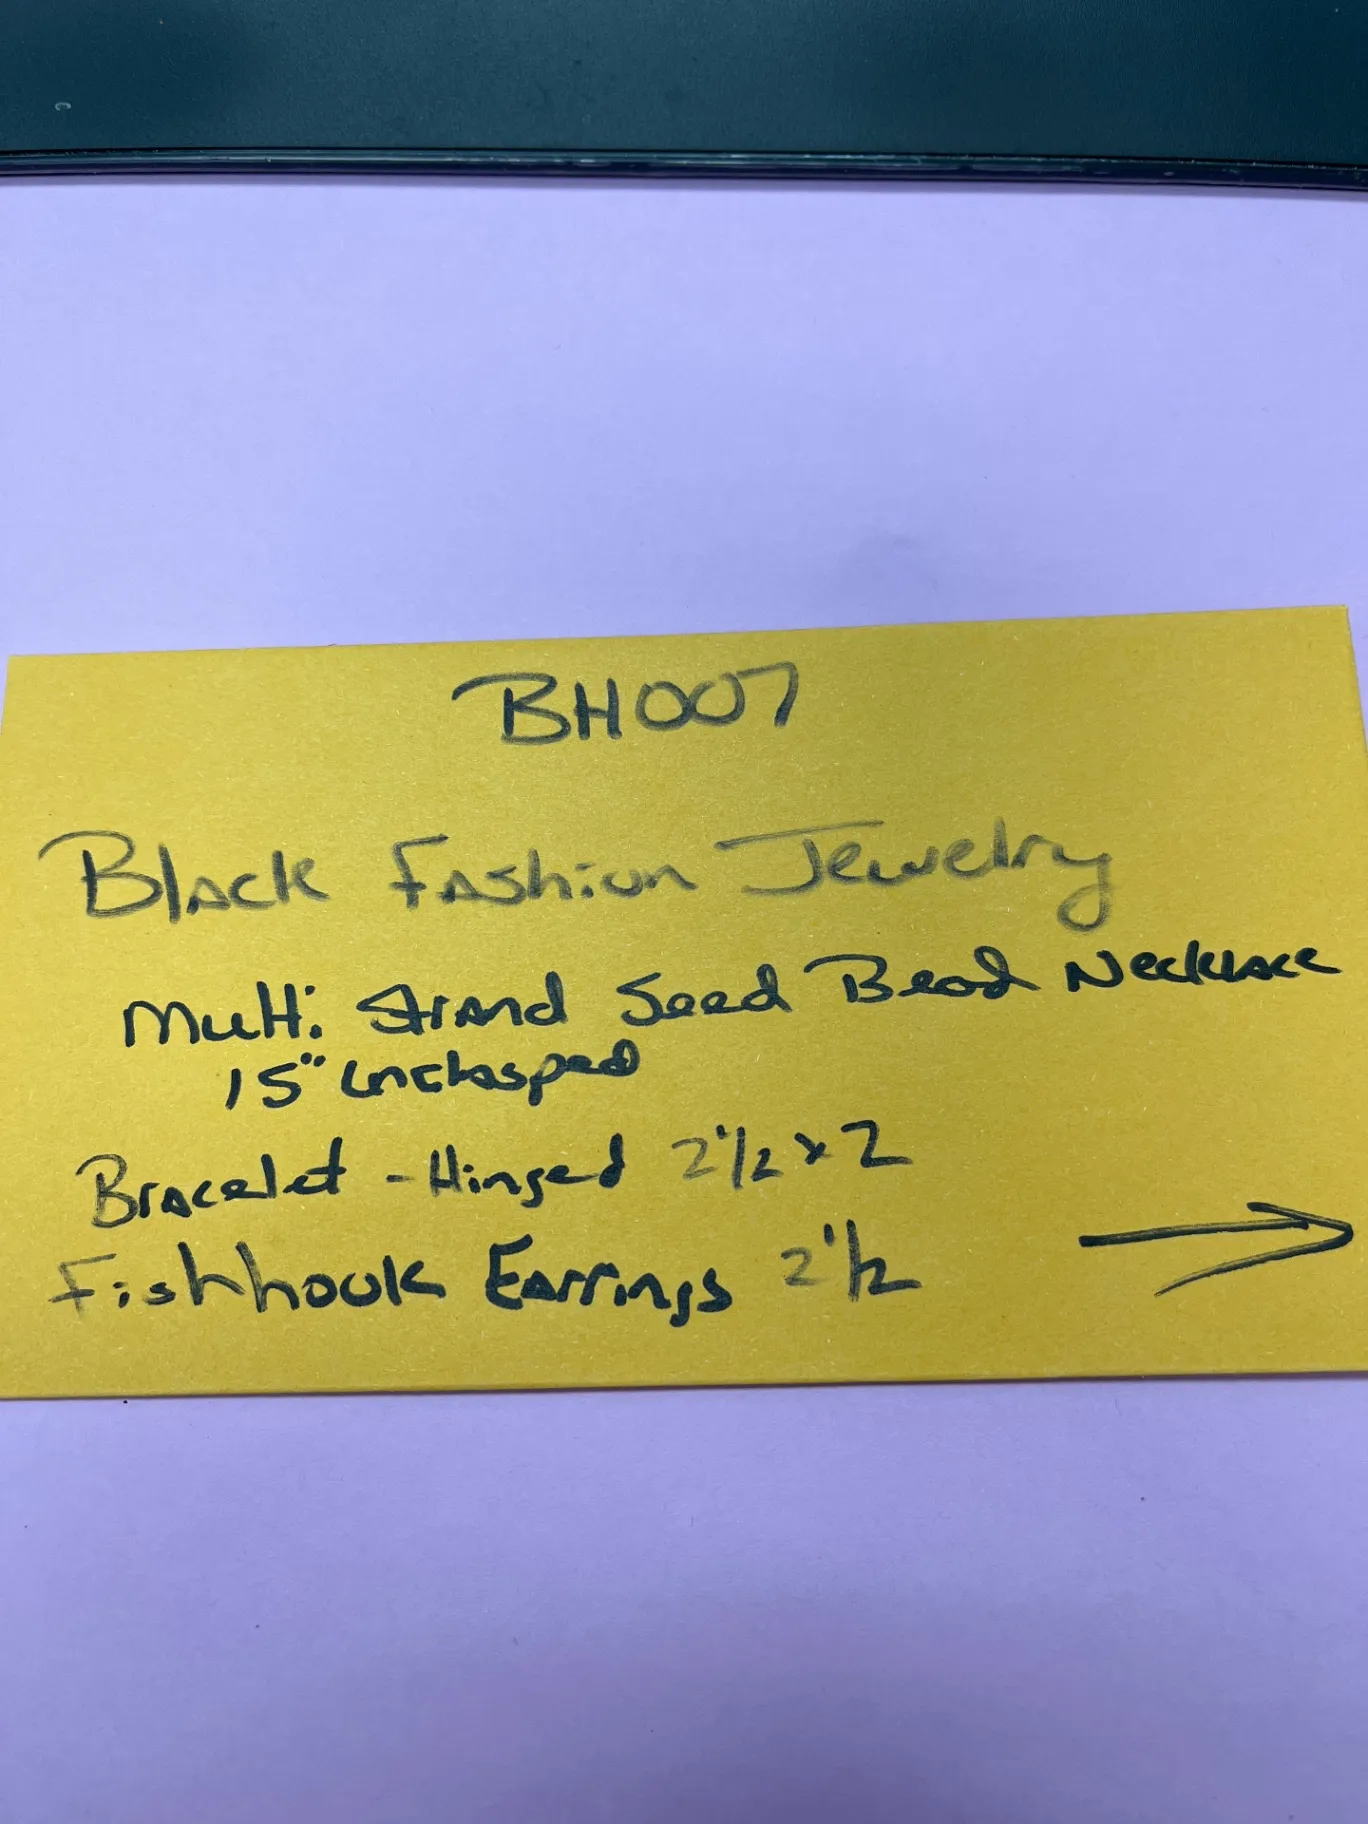 BH007
Black Fashion Jewelry
Multi Strand Seed Bead Necklace
15" unclasped
Bracelet - Hinged 2 1/2 x 2
Fishhook Earrings 2 1/2